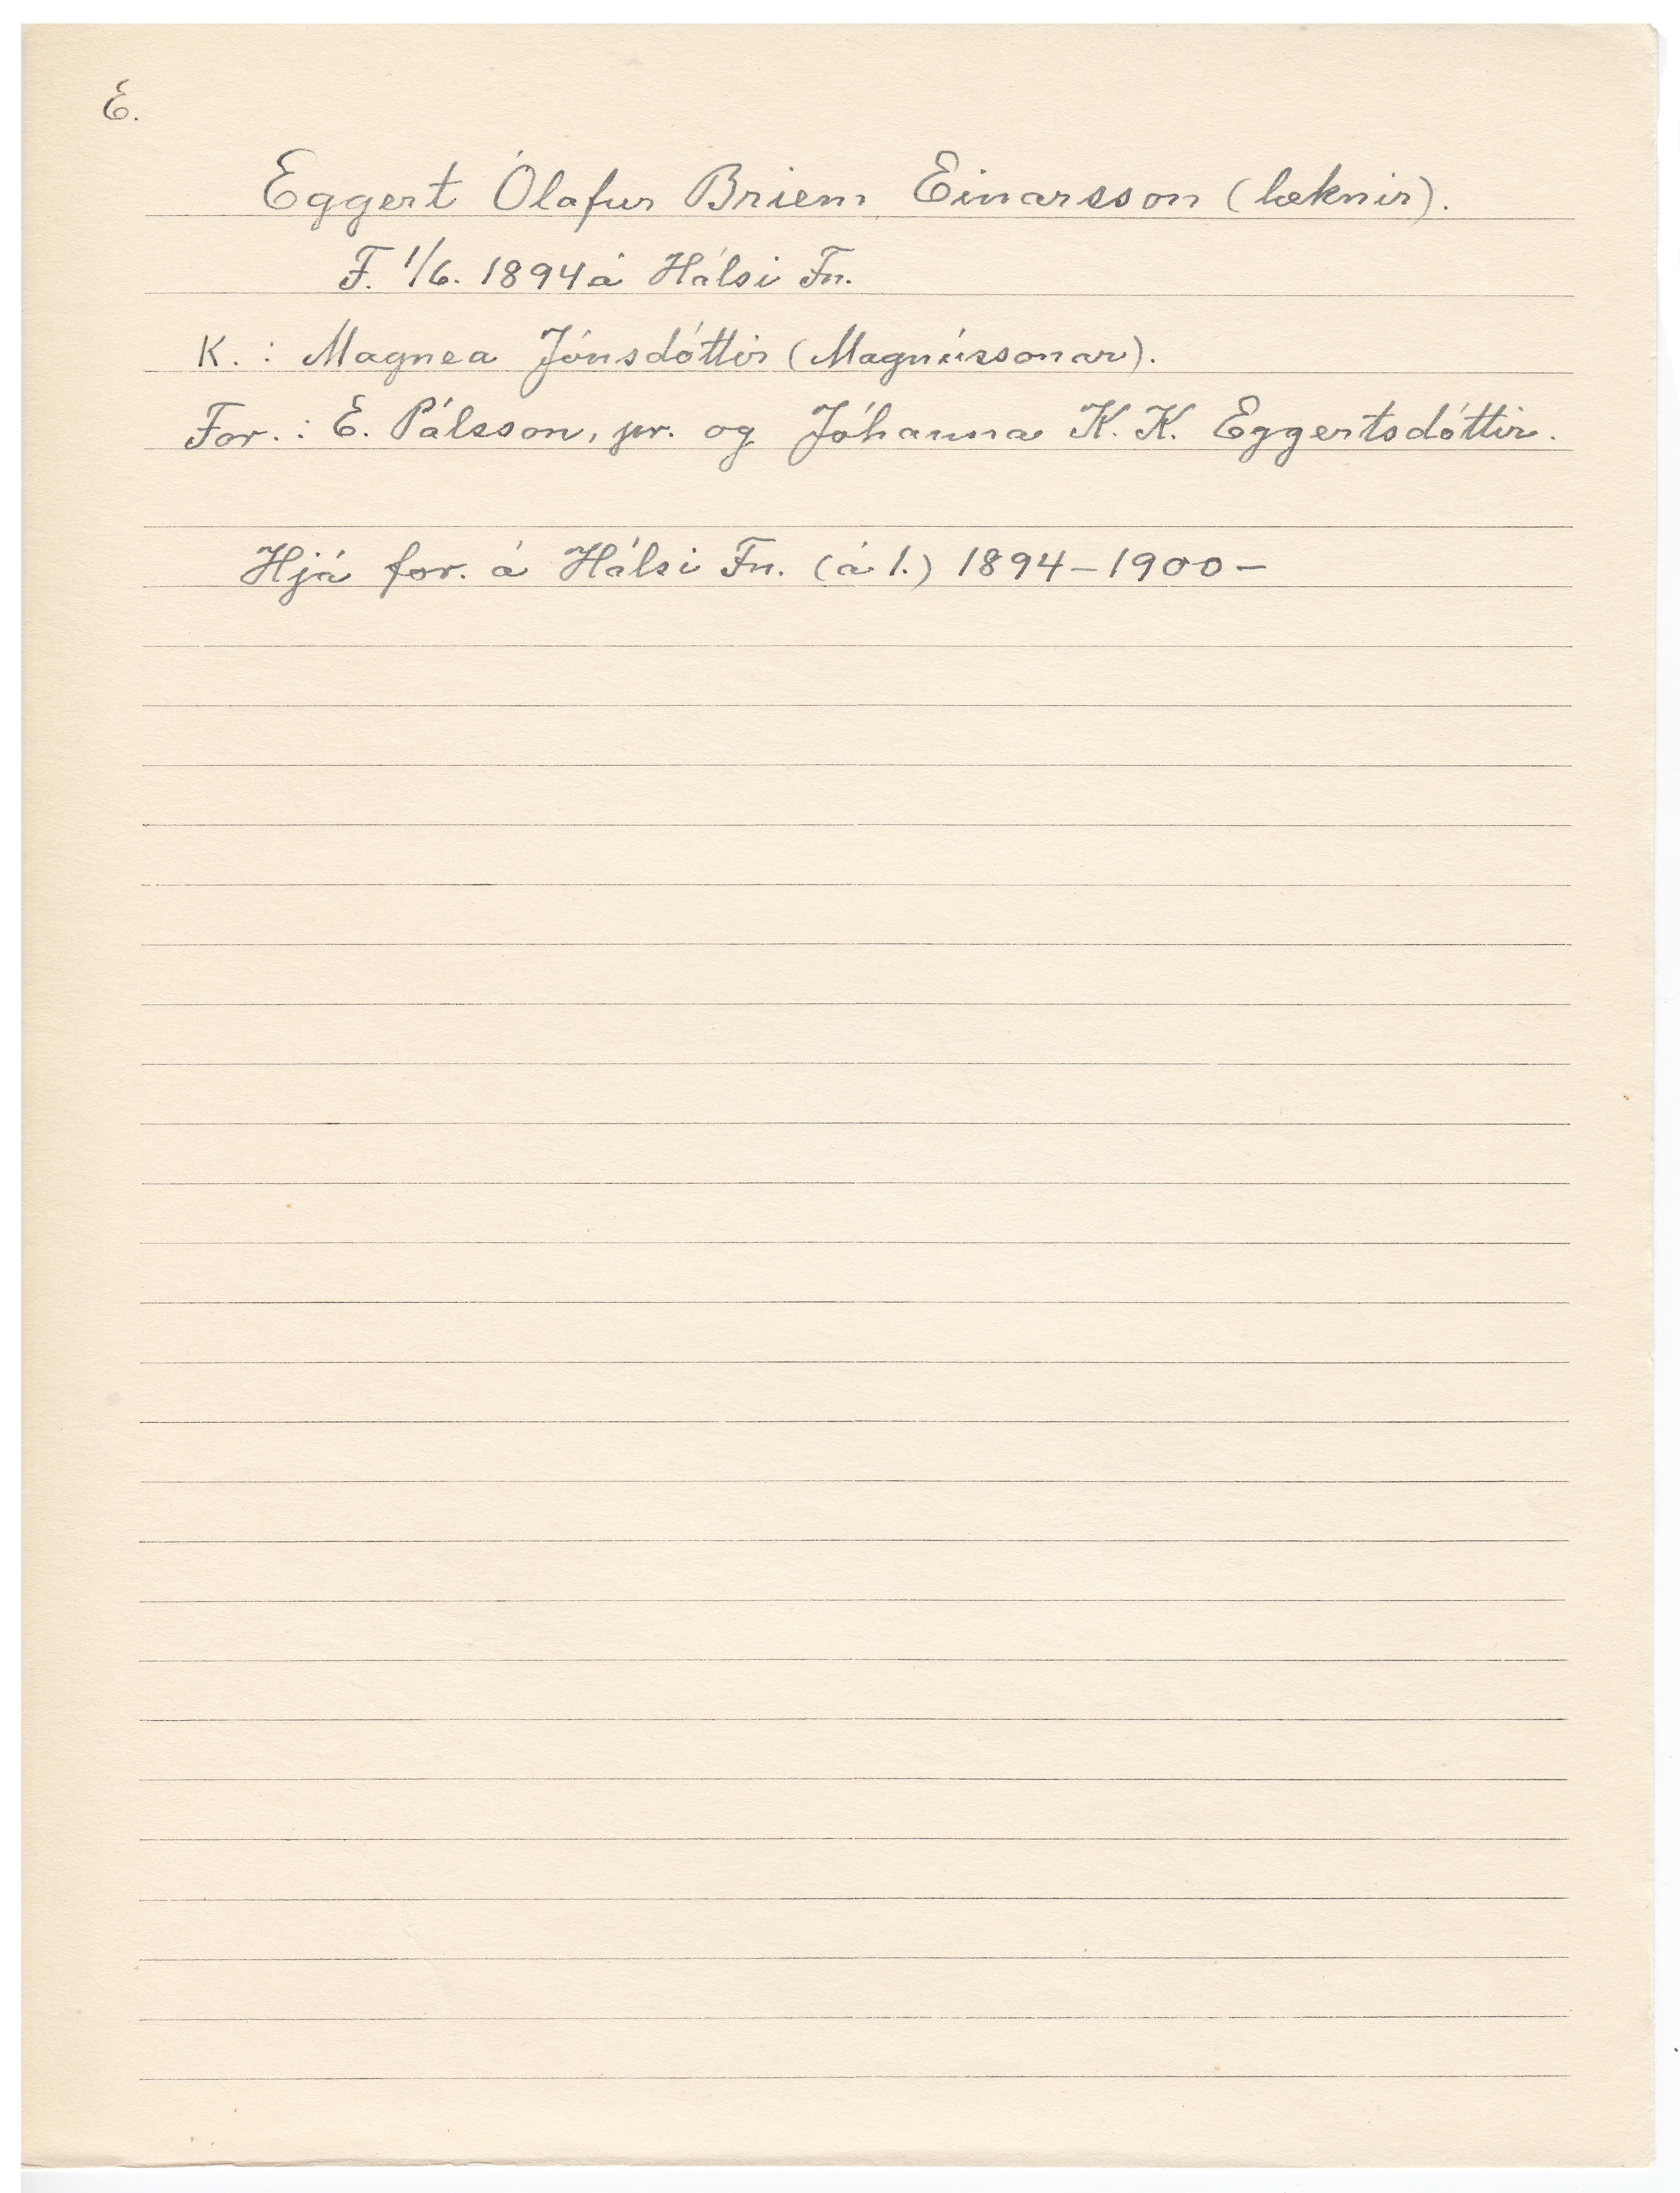 E.
Eggert Ólafur Briem Einarsson (læknir).
F. 1/6. 1894 á Hálsi Fn.
K. : Magnea Jónsdóttir (Magnússonar).
For. : E. Pálsson, pr. og Jóhanna K. K. Eggertsdóttir.
Hjá for. á Hálsi Fn. (á 1.) 1894 – 1900 –